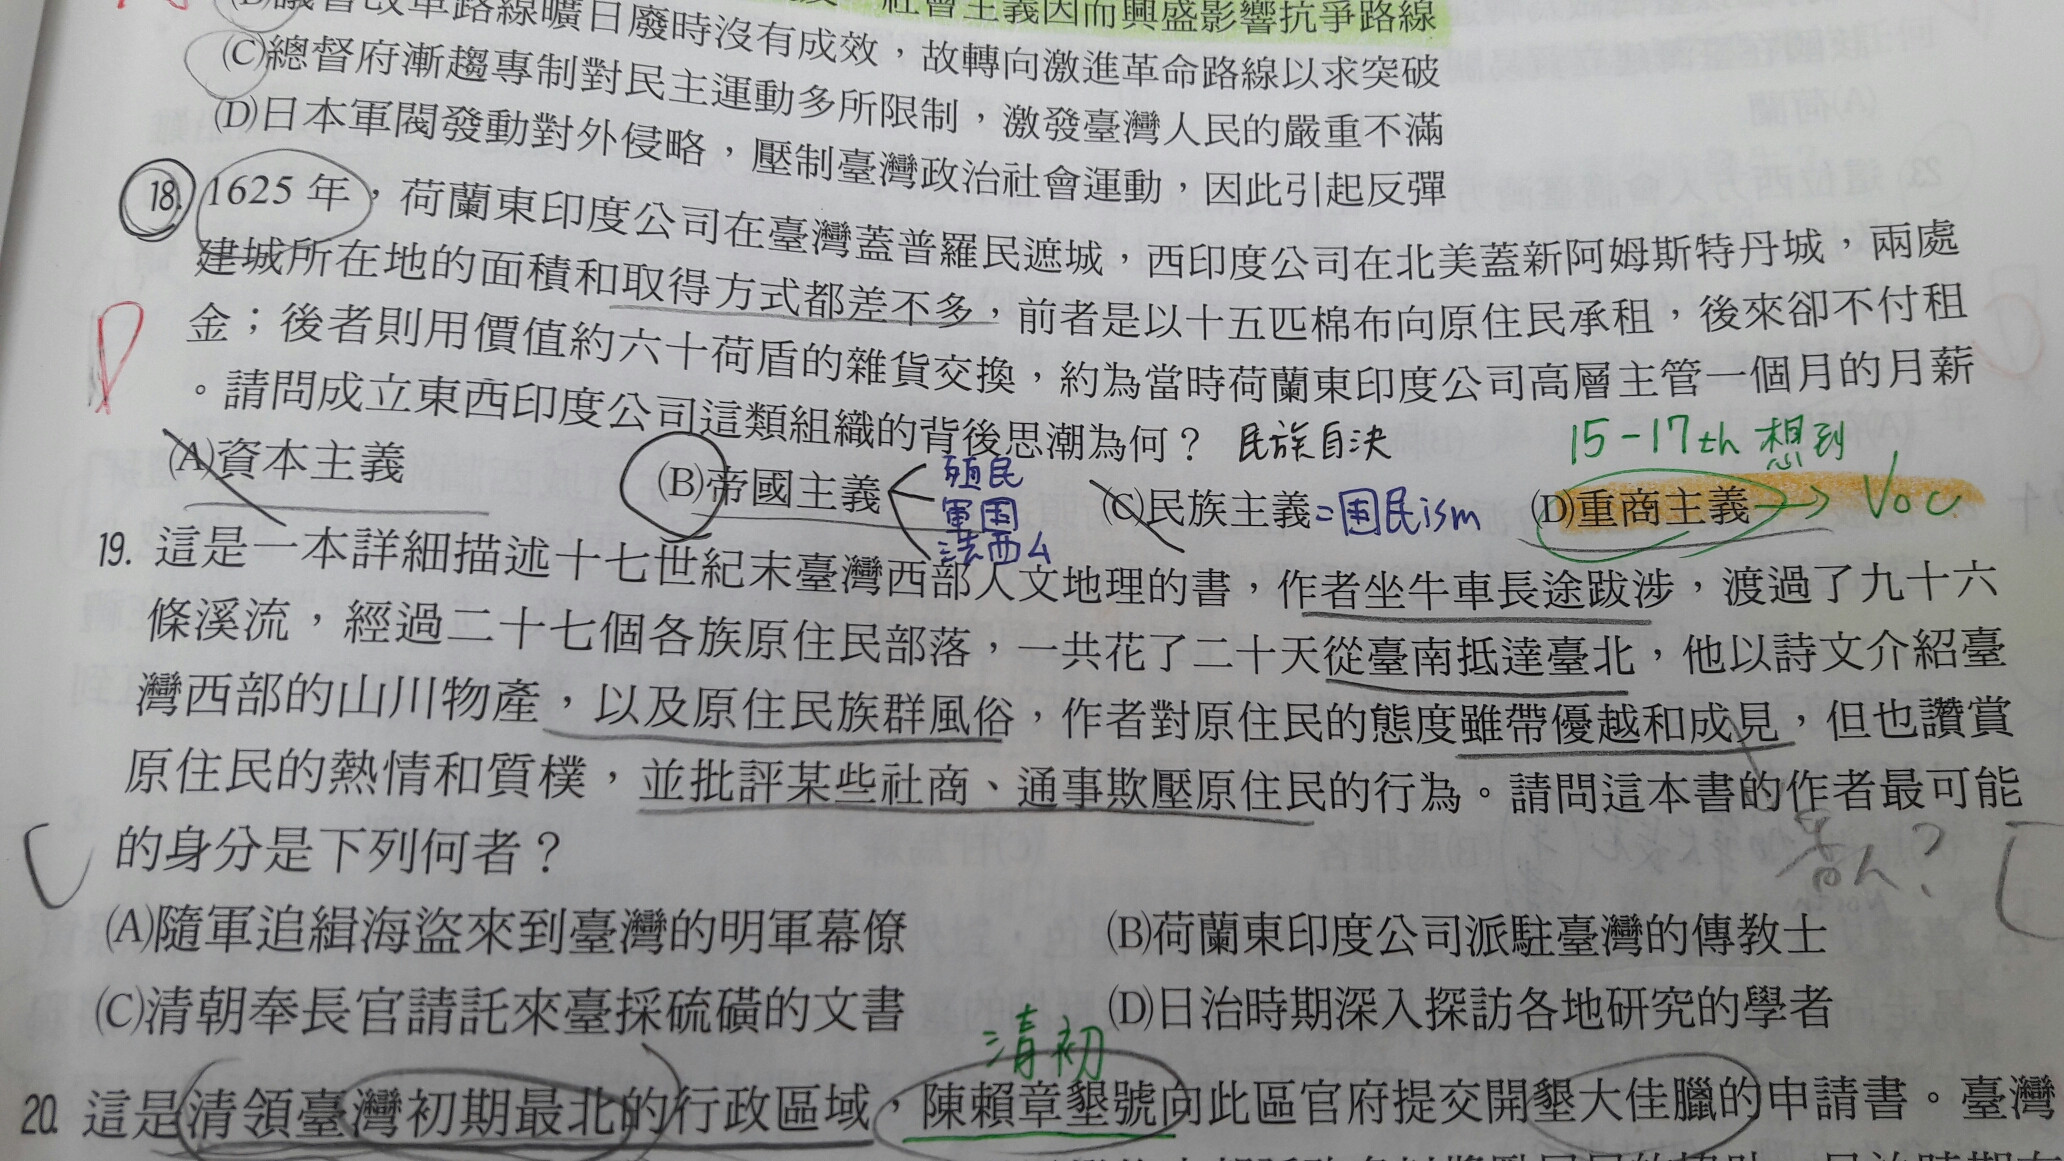 社會主義因而興盛影響抗爭路線
(B)議會改革路線曠日廢時沒有成效，故轉向激進革命路線以求突破
(C)總督府漸趨專制對民主運動多所限制，激發臺灣人民的嚴重不滿
(D)日本軍閥發動對外侵略，壓制臺灣政治社會運動，因此引起反彈
18. 1625年，荷蘭東印度公司在臺灣蓋普羅民遮城，西印度公司在北美蓋新阿姆斯特丹城，兩處
建城所在地的面積和取得方式都差不多，前者是以十五匹棉布向原住民承租，後來卻不付租
金；後者則用價值約六十荷盾的雜貨交換，約為當時荷蘭東印度公司高層主管一個月的月薪
。請問成立東西印度公司這類組織的背後思潮為何？ 民族自決
D
15-17th 想到
(A)資本主義 (B)帝國主義 (C)民族主義=国民ism (D)重商主義→VOC
殖民
軍国
法西ム
19. 這是一本詳細描述十七世紀末臺灣西部人文地理的書，作者坐牛車長途跋涉，渡過了九十六
條溪流，經過二十七個各族原住民部落，一共花了二十天從臺南抵達臺北，他以詩文介紹臺
灣西部的山川物產，以及原住民族群風俗，作者對原住民的態度雖帶優越和成見，但也讚賞
原住民的熱情和質樸，並批評某些社商、通事欺壓原住民的行為。請問這本書的作者最可能
的身分是下列何者？
C
(A)隨軍追緝海盜來到臺灣的明軍幕僚 (B)荷蘭東印度公司派駐臺灣的傳教士
(C)清朝奉長官請託來臺採硫磺的文書 (D)日治時期深入探訪各地研究的學者
清初
20. 這是清領臺灣初期最北的行政區域，陳賴章墾號向此區官府提交開墾大佳臘的申請書。臺灣